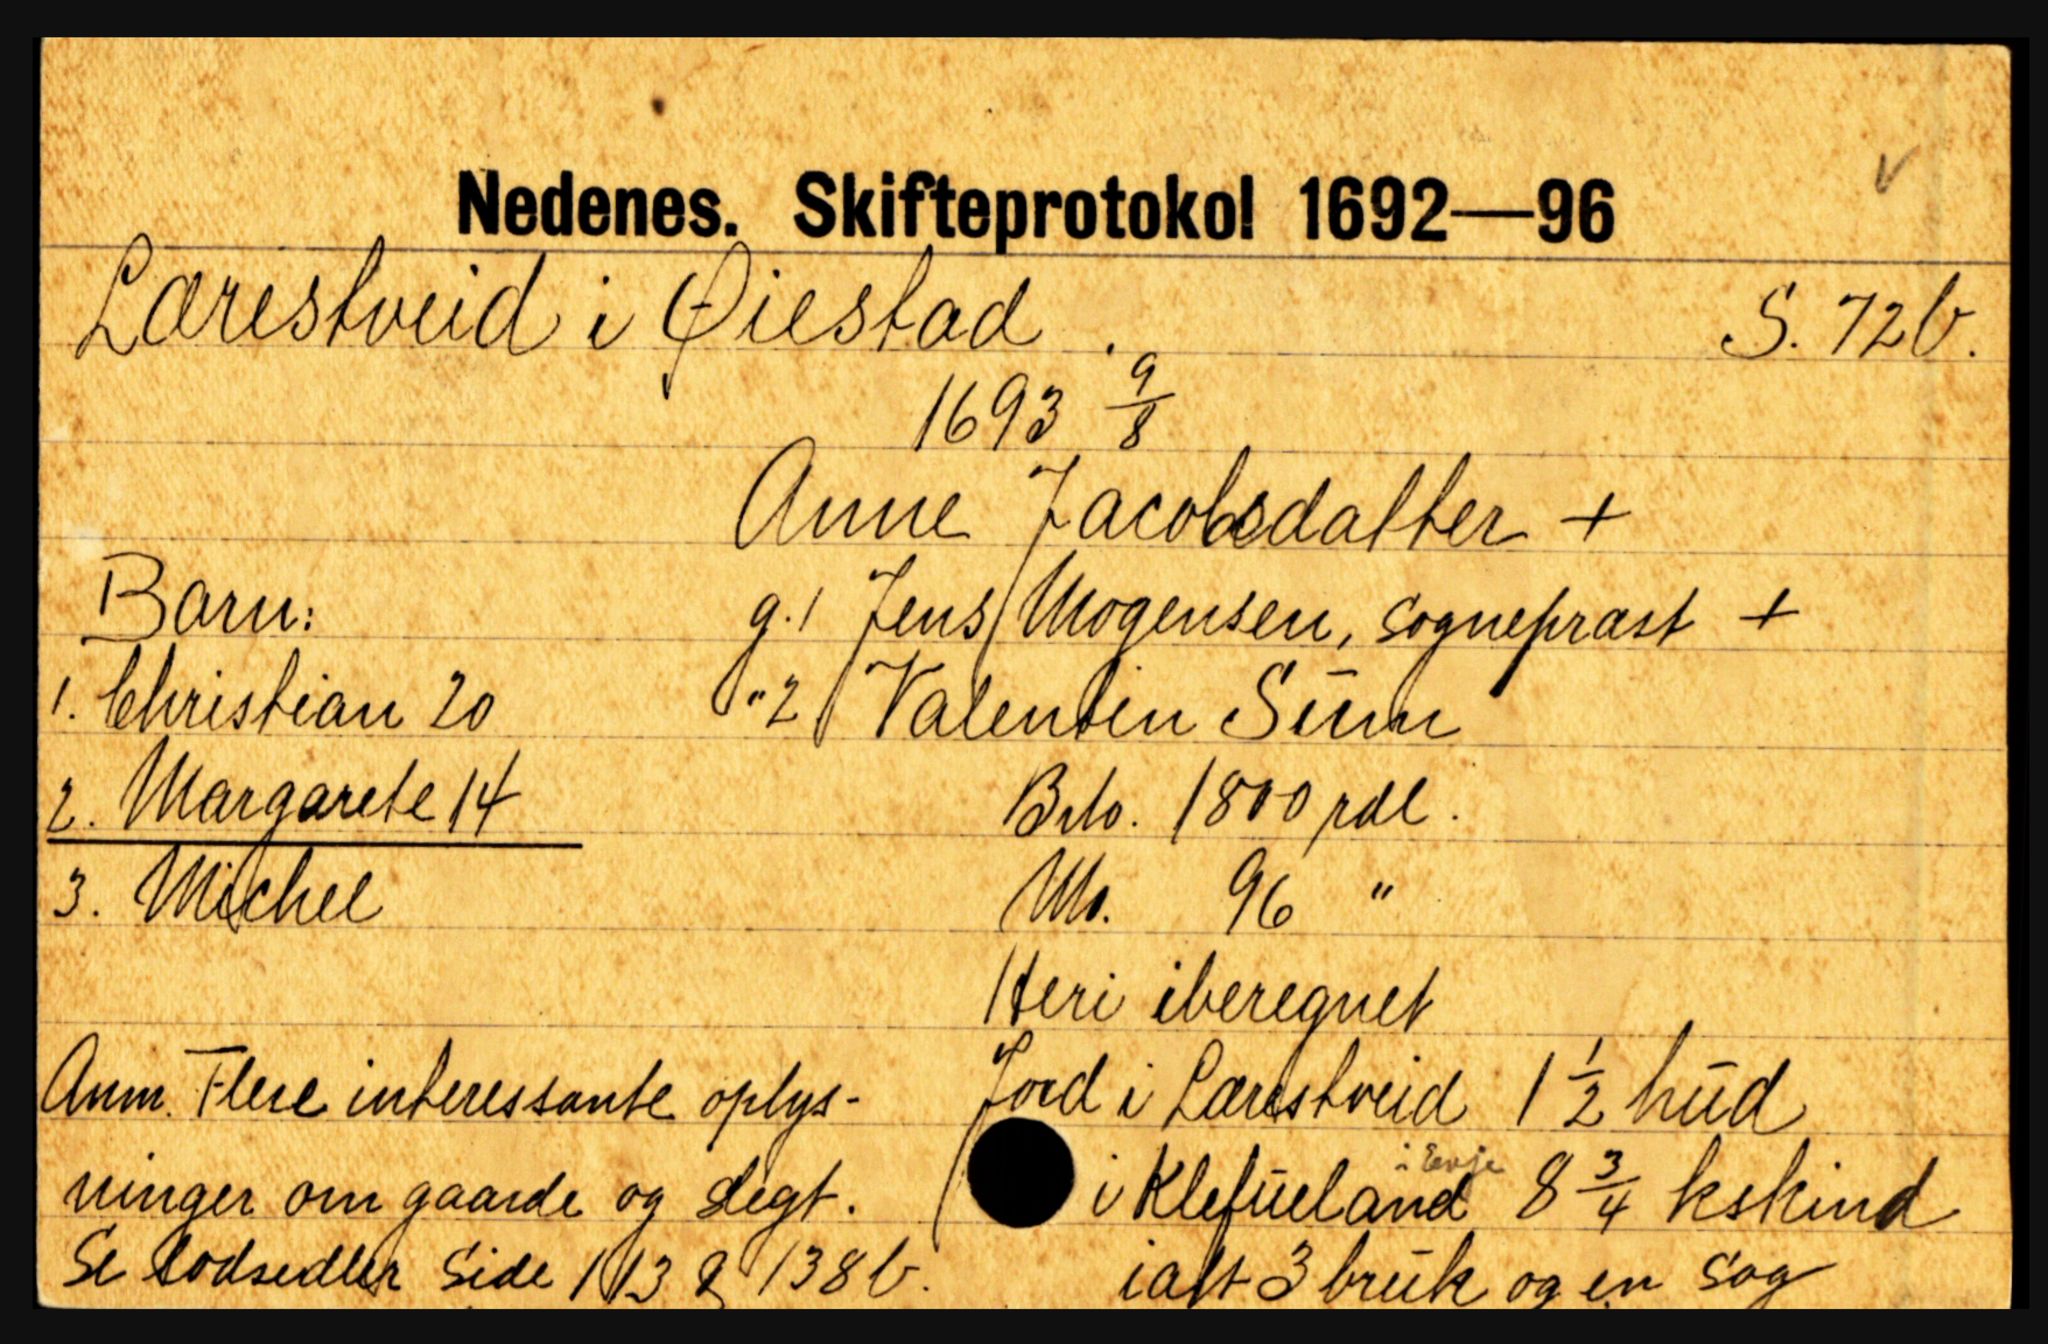 Nedenes. Skifteprotokol 1692—96
Lærestveid i Øiestad. S. 72b.
1693 9/8
Anne Jacobsdatter +
Barn:
g. 1 Jens Mogensen, sognepræst +
1. Christian 20
" 2. Valentin Sūm
2. Margarete 14
Brto. 1800 rdl.
3. Michel
No. 96 "
Heri iberegnet
Anm. Flere interessante oplys-
ninger om gaarde og slegt.
Se lodsedler side 113 & 138b.
Jord i Lærestveid 1 1/2 hūd
i Klefūeland i Evje 8 3/4 kskind
ialt 3 brūk og en sag